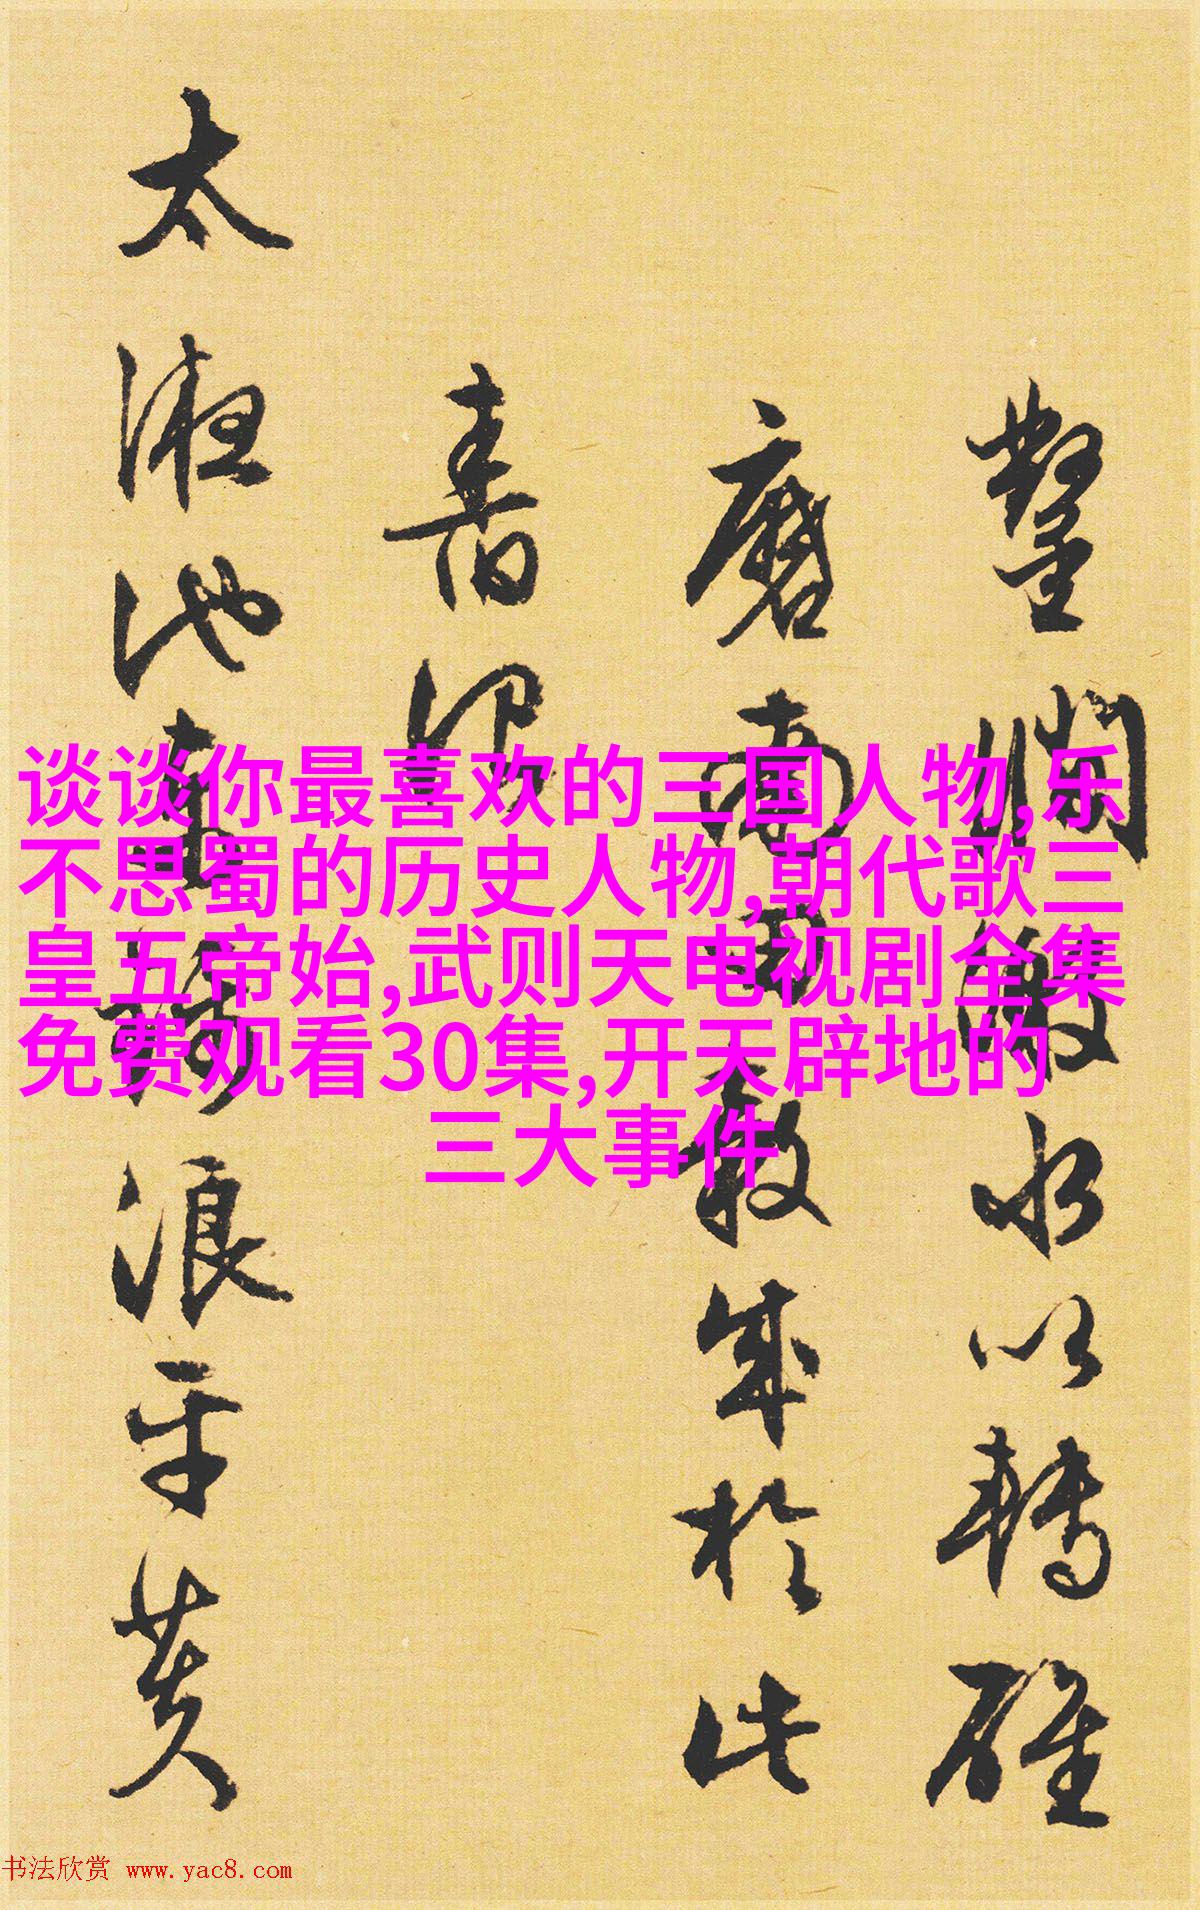 谈谈你最喜欢的三国人物,乐
不思蜀的历史人物,朝代歌三
皇五帝始,武则天电视剧全集
免费观看30集,开天辟地的
三大事件
鑿澗激水以轉碓
磨南於此
太液池浪平
书法欣赏 www.yac8.com